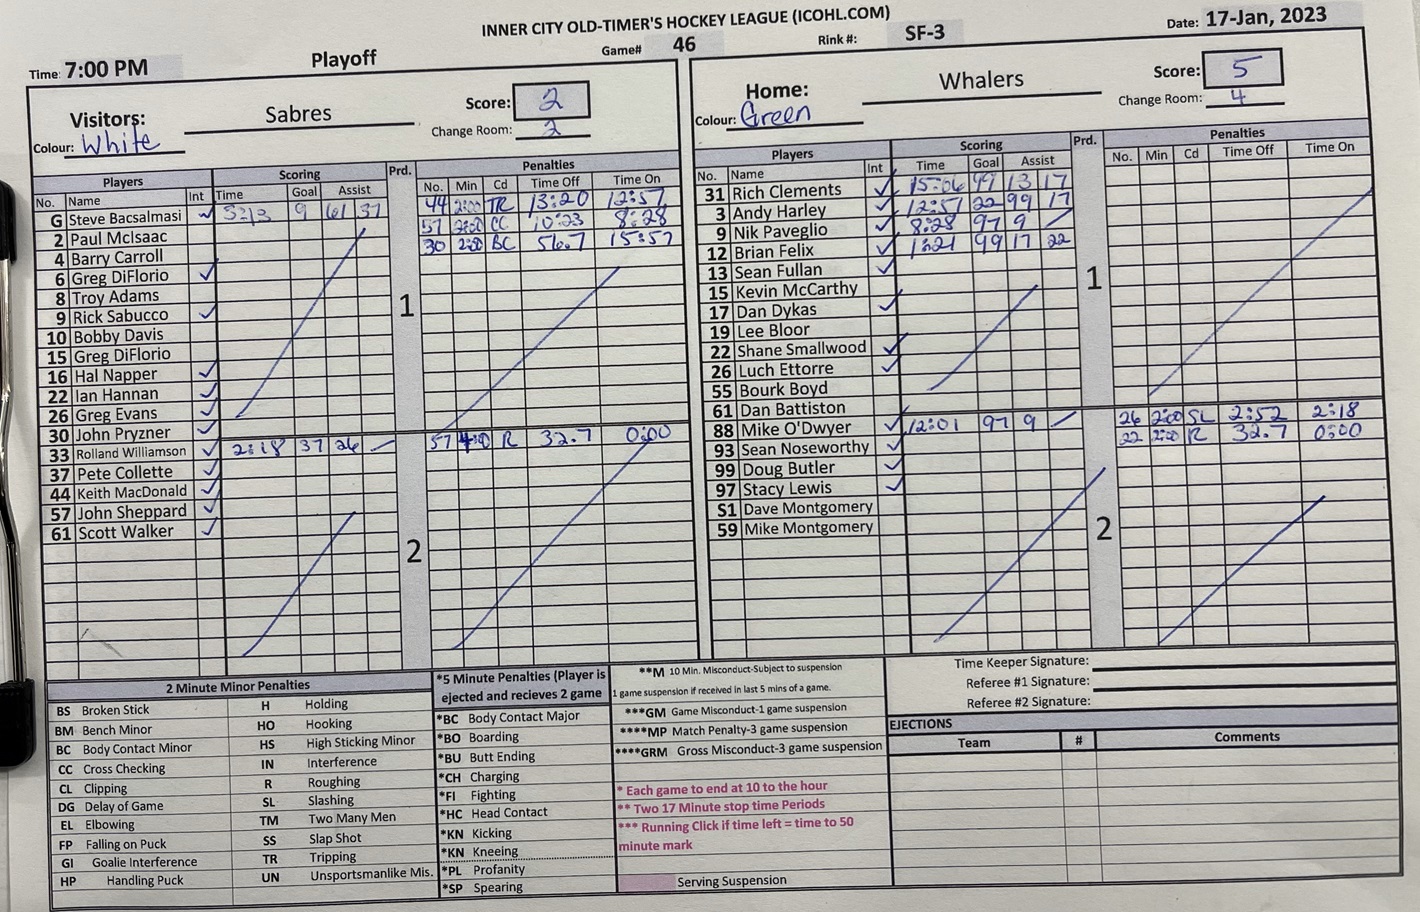 INNER CITY OLD-TIMER'S HOCKEY LEAGUE (ICOHL.COM)
Time: 7:00 PM Playoff Game# 46 Rink #: SF-3 Date: 17-Jan, 2023
Visitors: Sabres Score: 2
Colour: White Change Room: 2
Players Scoring Prd. Penalties
No. Name Int Time Goal Assist No. Min Cd Time Off Time On
G Steve Bacsalmasi ✓ 5:13 9 61 37 44 2:00 TR 13:20 12:57
2 Paul McIsaac 57 2:00 CC 10:23 8:28
4 Barry Carroll 30 2:00 BC 56.7 15:57
6 Greg DiFlorio ✓
8 Troy Adams
9 Rick Sabucco ✓
1
10 Bobby Davis
15 Greg DiFlorio
16 Hal Napper ✓
22 Ian Hannan ✓
26 Greg Evans ✓
30 John Pryzner ✓
33 Rolland Williamson ✓ 2:18 37 26 57 4:00 R 32.7 0:00
37 Pete Collette ✓
44 Keith MacDonald ✓
57 John Sheppard ✓
61 Scott Walker ✓
2
Home: Whalers Score: 5
Colour: Green Change Room: 4
Players Scoring Prd. Penalties
No. Name Int Time Goal Assist No. Min Cd Time Off Time On
31 Rich Clements ✓ 15:06 99 13 17
3 Andy Harley ✓ 12:57 22 99 17
9 Nik Paveglio ✓ 8:28 97 9
12 Brian Felix ✓ 1:21 99 17 22
13 Sean Fullan ✓
1
15 Kevin McCarthy
17 Dan Dykas ✓
19 Lee Bloor
22 Shane Smallwood ✓
26 Luch Ettorre ✓
55 Bourk Boyd
61 Dan Battiston
88 Mike O'Dwyer ✓ 12:01 97 9 26 2:00 SL 2:52 2:18
93 Sean Noseworthy ✓ 22 2:00 R 32.7 0:00
99 Doug Butler ✓
97 Stacy Lewis ✓
S1 Dave Montgomery
59 Mike Montgomery
2
2 Minute Minor Penalties
BS Broken Stick H Holding
BM Bench Minor HO Hooking
BC Body Contact Minor HS High Sticking Minor
CC Cross Checking IN Interference
CL Clipping R Roughing
DG Delay of Game SL Slashing
EL Elbowing TM Two Many Men
FP Falling on Puck SS Slap Shot
GI Goalie Interference TR Tripping
HP Handling Puck UN Unsportsmanlike Mis.
*5 Minute Penalties (Player is
ejected and recieves 2 game
*BC Body Contact Major
*BO Boarding
*BU Butt Ending
*CH Charging
*FI Fighting
*HC Head Contact
*KN Kicking
*KN Kneeing
*PL Profanity
*SP Spearing
**M 10 Min. Misconduct-Subject to suspension
1 game suspension if received in last 5 mins of a game.
***GM Game Misconduct-1 game suspension
****MP Match Penalty-3 game suspension
****GRM Gross Misconduct-3 game suspension
* Each game to end at 10 to the hour
** Two 17 Minute stop time Periods
*** Running Click if time left = time to 50
minute mark
Serving Suspension
Time Keeper Signature:
Referee #1 Signature:
Referee #2 Signature:
EJECTIONS
Team # Comments